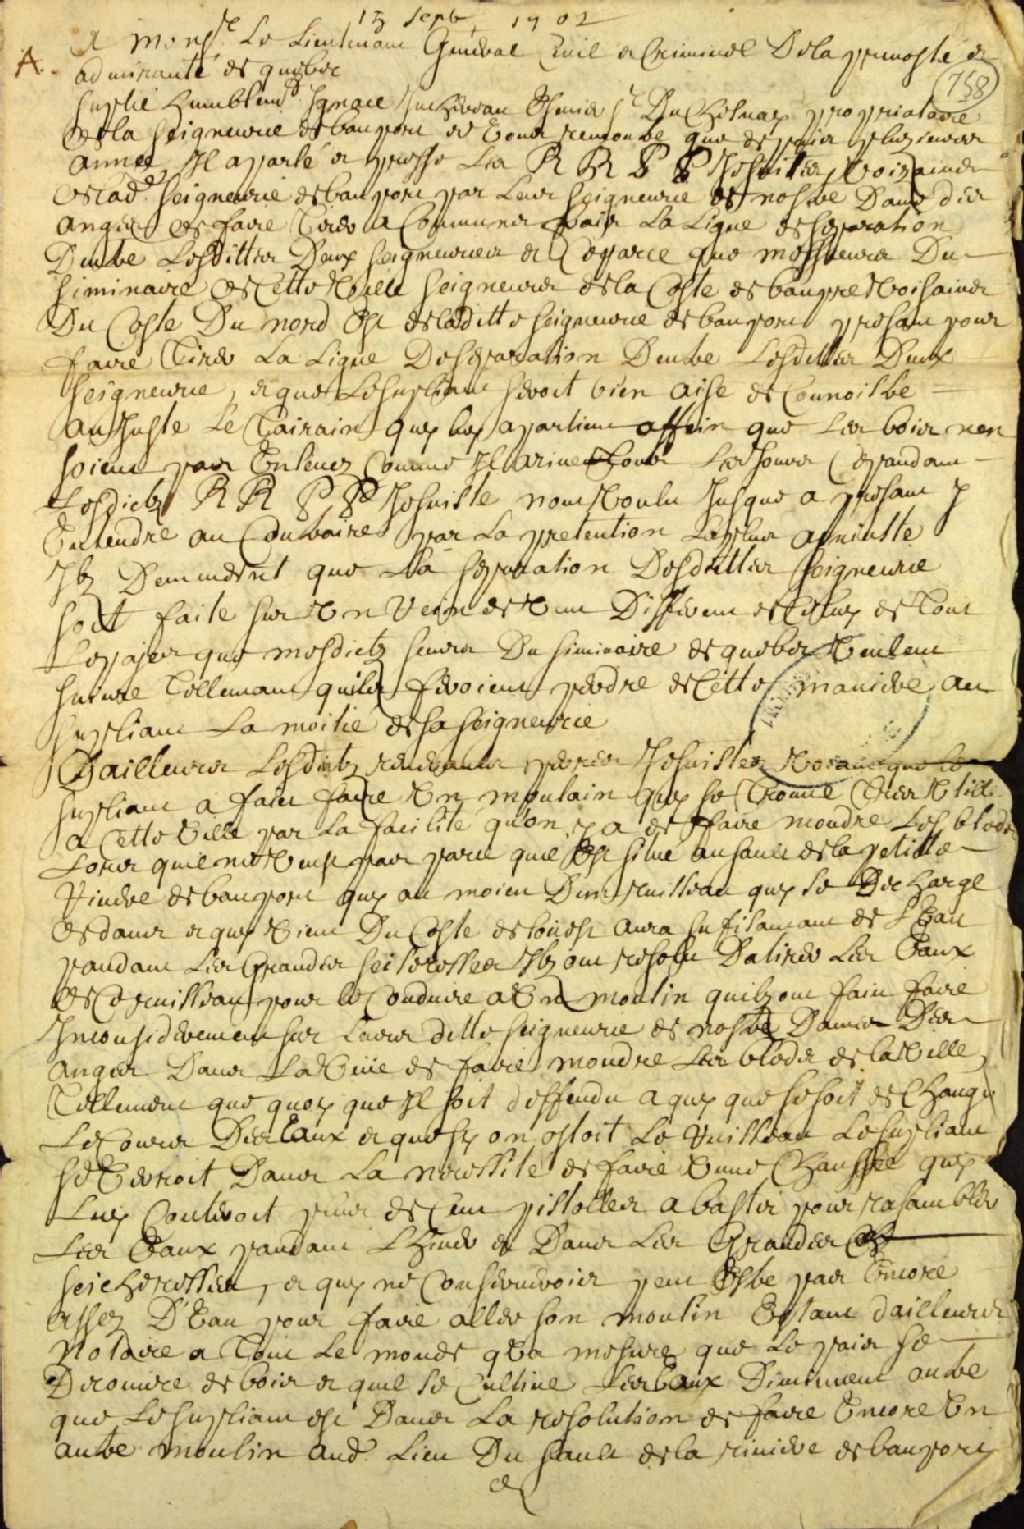 13 Septe 1702
A Monsr Le Lieutenant General Civil et Criminel De la prevosté et
A.
admirauté de quebec
758
Suplie humblemt Ignace Juchereau Escuier Sr Du Chesnay proprietaire
de la Seigneurie de bauport et vous remontre que depuis plusieurs
années Il a parlé et presse Les R R P P Jesuittes voizains
de lade Seigneurie de bauport par Leur Seigneurie de nostre Dame des
anges de faire tirer a Communs frais La Ligne de Separation
Dentre Lesdittes Deux Seigneuries et Ce parce que messieurs Du
Seminaire de Cette Ville Seigneurs de la Coste de baupre Voisains
Du Coste Du nord Est de laditte Seigneurie de bauport presant pour
faire tirer La Ligne De Separation Dentre Lesdittes Deux
Seigneurie, et que Le Supliant seroit bien aise de Connoistre
au Juste Le tairain quy luy apartient affin que Les bois nen
soient pas Enlevez Comme Il arive tous Les Jours Cepandant
Lesdietz R R P P Jesuiste nont Voulu Jusque a presant y
Entendre au Contraire par La pretention
Ilz Demandent que La Separation Desdittes Seigneurie
soit faite sur Un Vein de Vent Different de Celuy de tout
Le pajis que mesdietz Sieurs Du Seminaire de quebec Veulent
suivre tellemant quils feroient perdre de Cette maniere au
Supliant La moitié de sa Seigneurie
Dailleurs Lesdietz reverants peres Jesuistes Voiant que le
Supliant a fait faire Un moulain quy se trouve tres Utille
a Cette Ville par La facilité quon y a de faire moudre Les bleds
Lors quil ne Vente pas parce quil Est situé au sault de la petitte
Riviere de bauport quy au moien Dun ruisseau quy se Decharge
dedans et quy Vient Du Coste de louest aura sufisamant de Leau
pandant Les Grandes seicheresses Ilz ont resolu Datirer Les Eaux
de Ce ruisseau pour le Conduire a Un moulin quilz ont fait faire
Inconsiderement sur Leurs ditte Seigneurie de nostre Dame Des
anges Dans La Vüe de faire moudre Les bleds de la Ville,
tellement que quoy que Il soit deffendu a quy que se soit de Changer
Le Cours Des Eaux et que sy on ostoit Le ruisseau Le Supliant
se Verroit Dans La necessité de faire Une Chaussée quy
Luy Couteroit plus de Cent pistolles a bastir pour rasambler
Les Eaux pandant Lhiver et Dans Les Grandes
seicheresses, et quy ne Conserveroit peut Estre pas Encore
assez D'Eau pour faire aller son moulin Estant dailleurs
Notoire a tout Le monde qua mesure que Le pais se
Decouvre de bois et quil se Cultive Les Eaux Diminuent outre
que Le Supliant est Dans La resolution de faire Encore Un
autre moulin aud. Lieu Du sault de la riviere de bauport
et